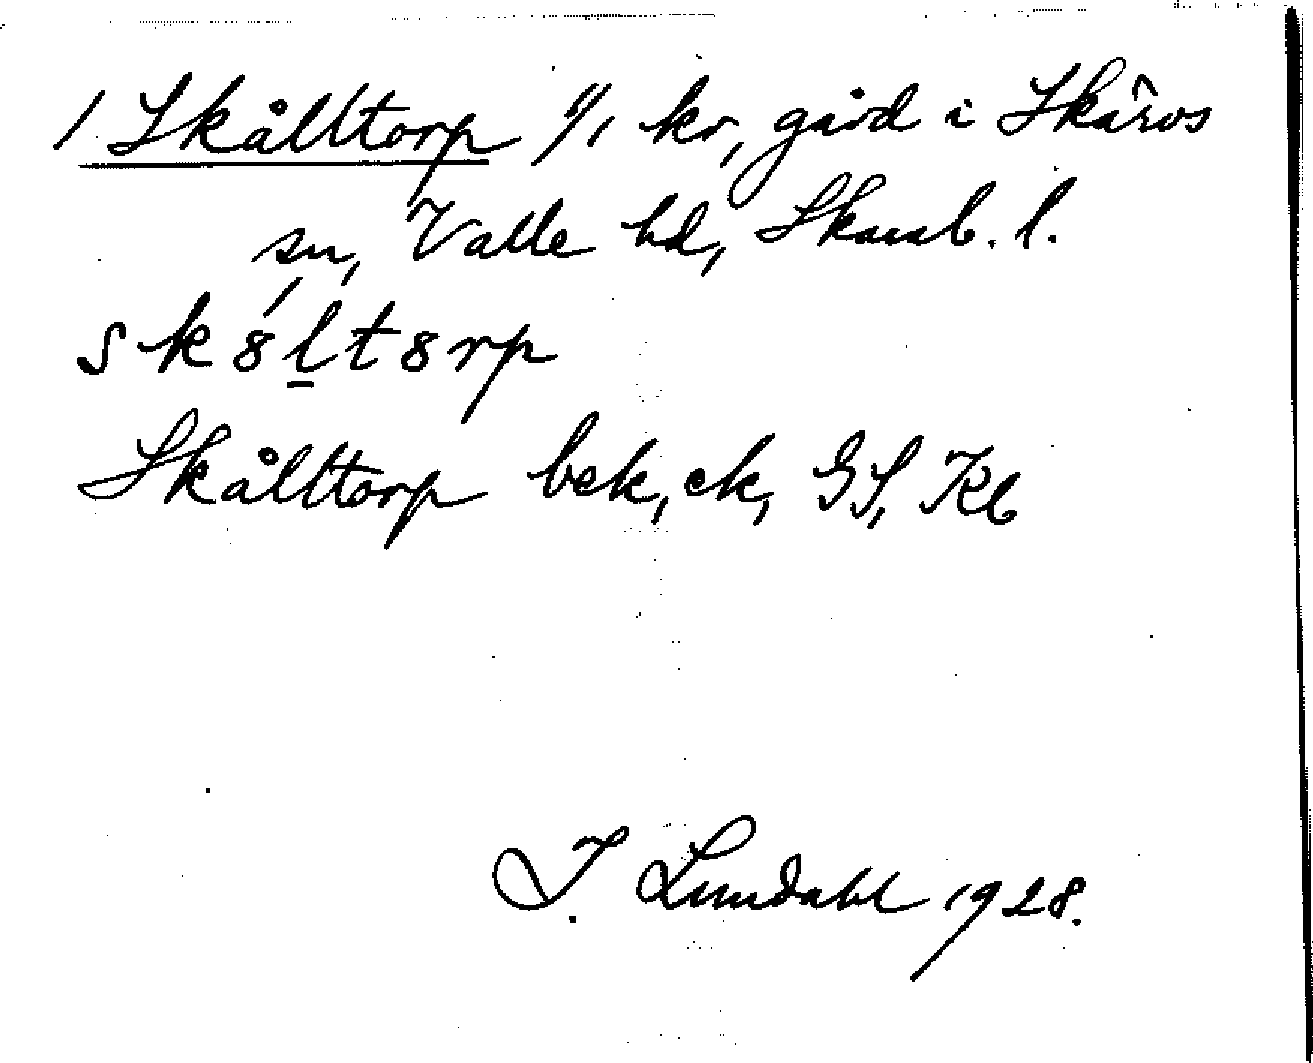 1 Skålltorp 1/1 kr, gård i Skärvs
sn, Valle hd, Skarab. l.
sk8́l̲t8rp
Skålltorp bek, ek, GS, Kb
I. Lundahl 1928.